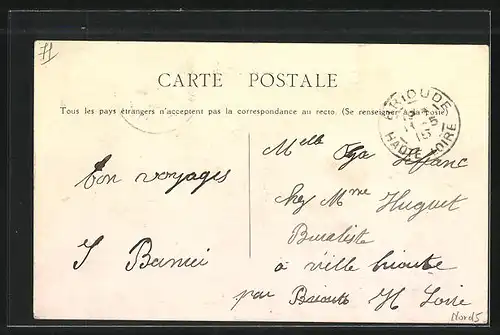 CARTE POSTALE
Tous les pays étrangers n'acceptent pas la correspondance au recto. (Se renseigner à la poste)
BRIOUDE
HAUTE-LOIRE
bon voyages
Melle
chez Mme Huguet
Buraliste
à ville brioute
par H Loire
Nord5